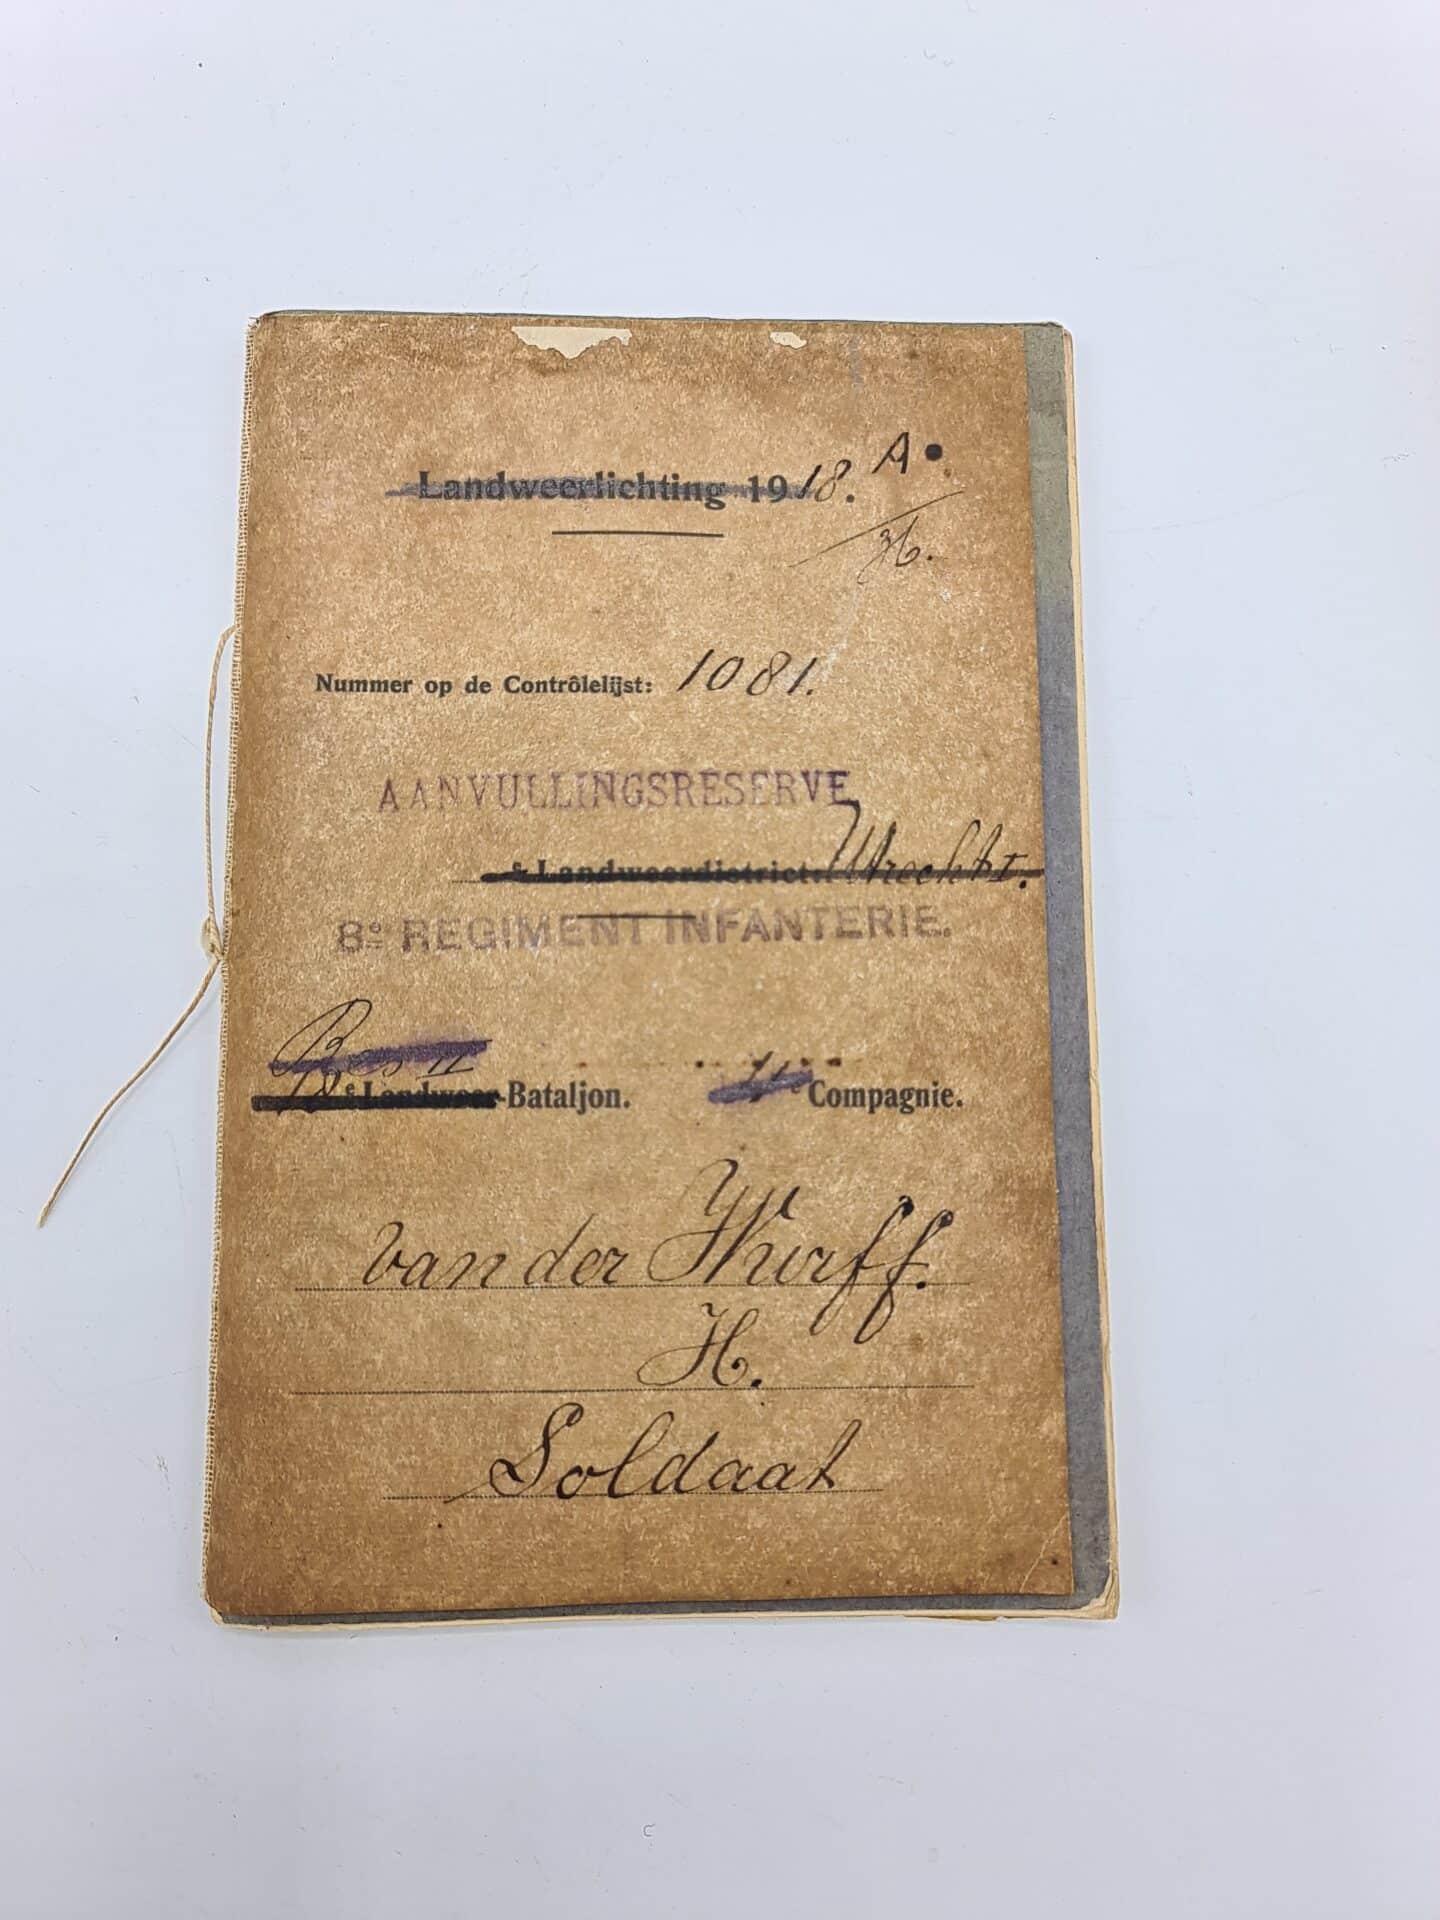 Landweerlichting 1918. A.
H.
Nummer op de Contrôlelijst: 1081.
AANVULLINGSRESERVE
e Landweerdistrict: Utrecht I.
8e REGIMENT INFANTERIE.
Res II
18e Landweer-Bataljon. Compagnie.
van der Werff.
H.
Soldaat